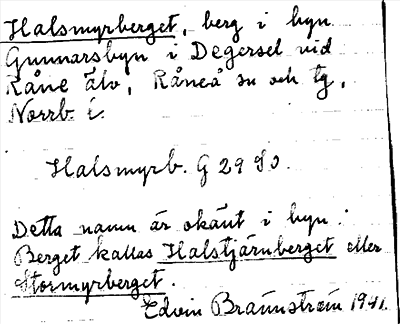 Halsmyrberget, berg i byn
Gunnarsbyn i Degersel vid
Råne älv, Råneå sn och tg,
Norrb. l.
Halsmyrb. G 29 SO.
Detta namn är okänt i byn.
Berget kallas Halstjärnberget eller
Stormyrberget.
Edvin Brännström 1941.